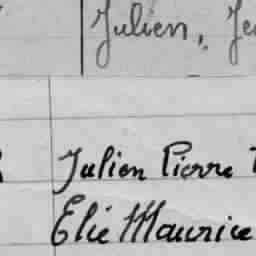 Julien, Je
Julien Pierre
Elie Maurice